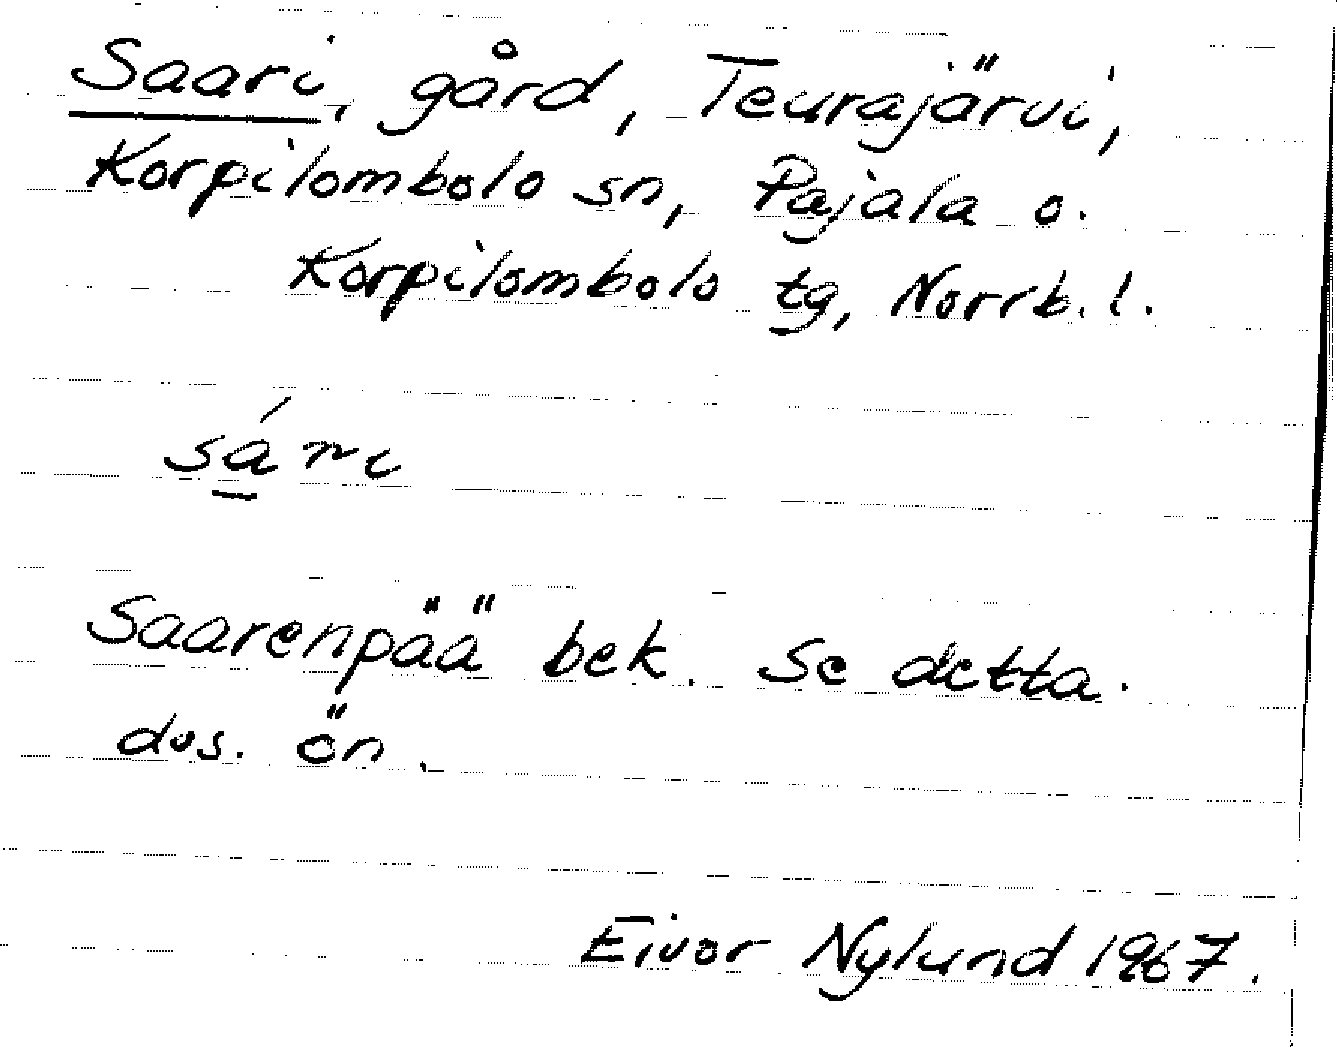 Saari, gård, Teurajärvi,
Korpilombolo sn, Pajala o.
Korpilombolo tg, Norrb. l.
sá̱ri
Saarenpää bek. Se detta.
dvs. ön.
Eivor Nylund 1967.